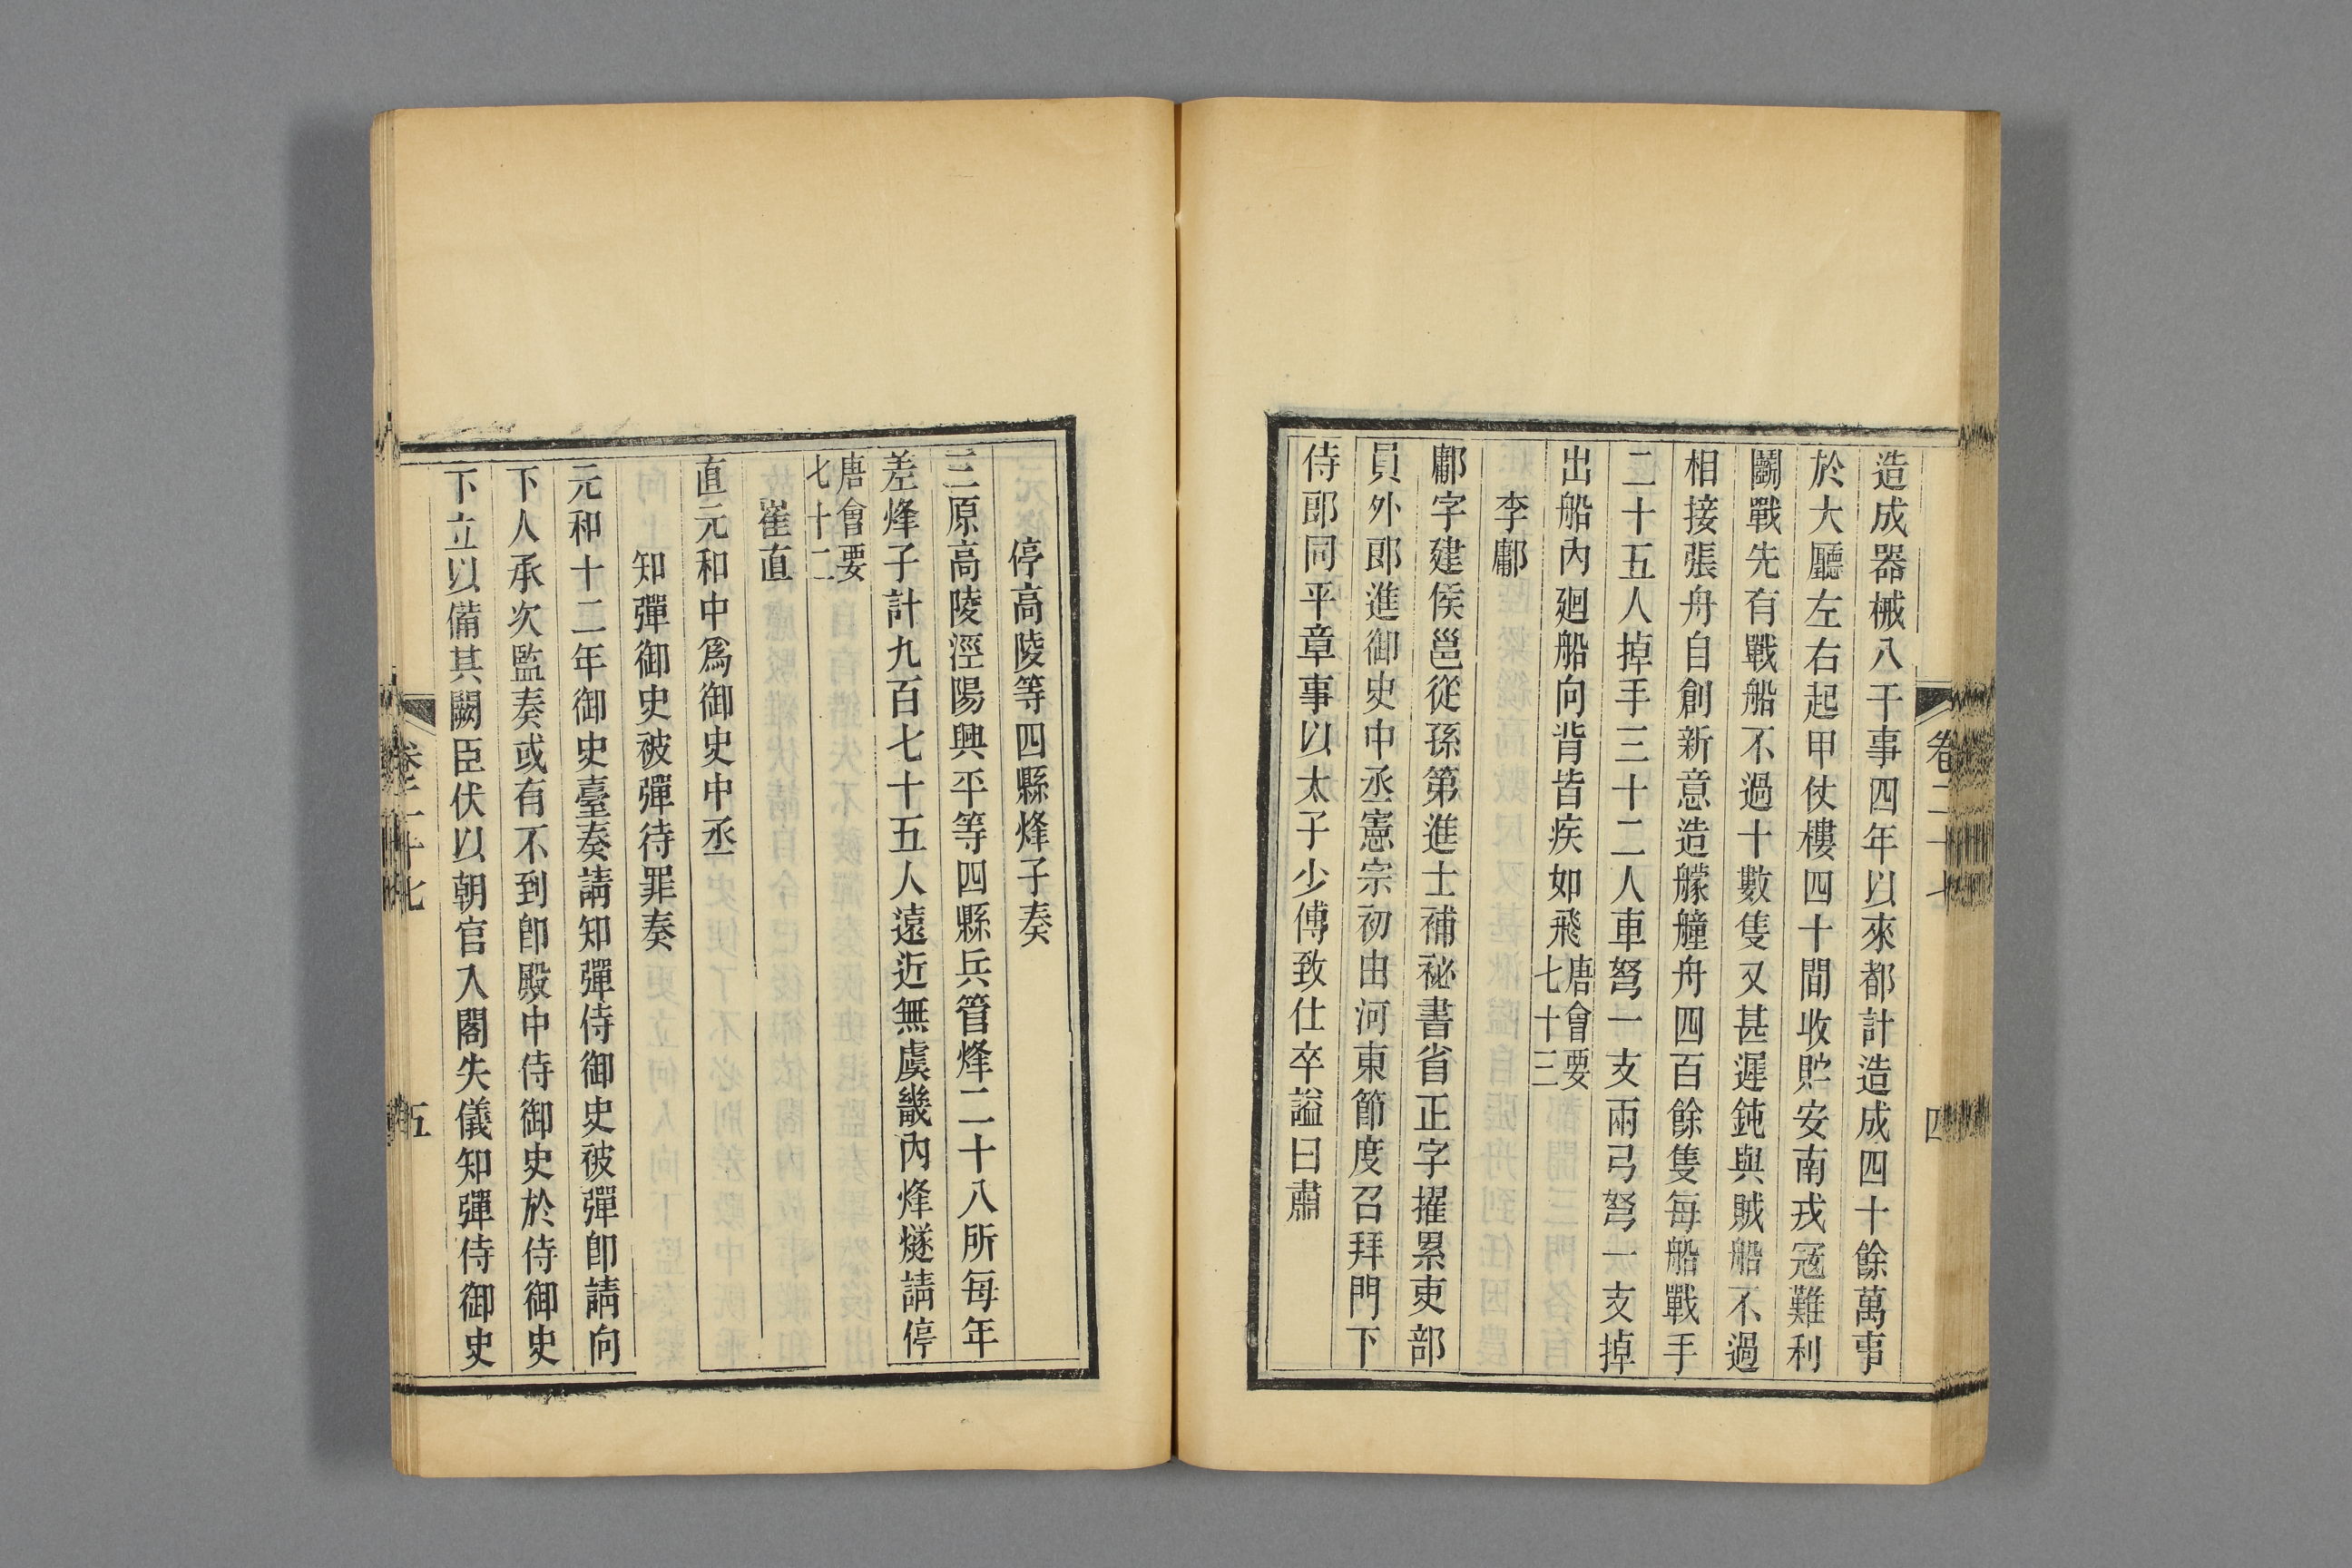 造成器械八千事四年以來都計造成四十餘萬事
於大廳左右起甲仗樓四十間收貯安南戎寇難利
鬭戰先有戰船不過十數隻又甚遲鈍與賊船不過
相接張舟自創新意造艨艟舟四百餘隻每船戰手
二十五人掉手三十二人車弩一支兩弓弩一支掉
出船內廻船向背皆疾如飛唐會要七十三
李鄘
鄘字建侯邕從孫第進士補祕書省正字擢累吏部
員外郎進御史中丞憲宗初由河東節度召拜門下
侍郎同平章事以太子少傅致仕卒謚曰肅
卷二十七
四
停高陵等四縣烽子奏
三原高陵涇陽興平等四縣兵管烽二十八所每年
差烽子計九百七十五人遠近無虞畿內烽燧請停
唐會要七十二
崔直
直元和中爲御史中丞
知彈御史被彈待罪奏
元和十二年御史臺奏請知彈侍御史被彈卽請向
下人承次監奏或有不到卽殿中侍御史於侍御史
下立以備其闕臣伏以朝官入閣失儀知彈侍御史
卷二十七
五